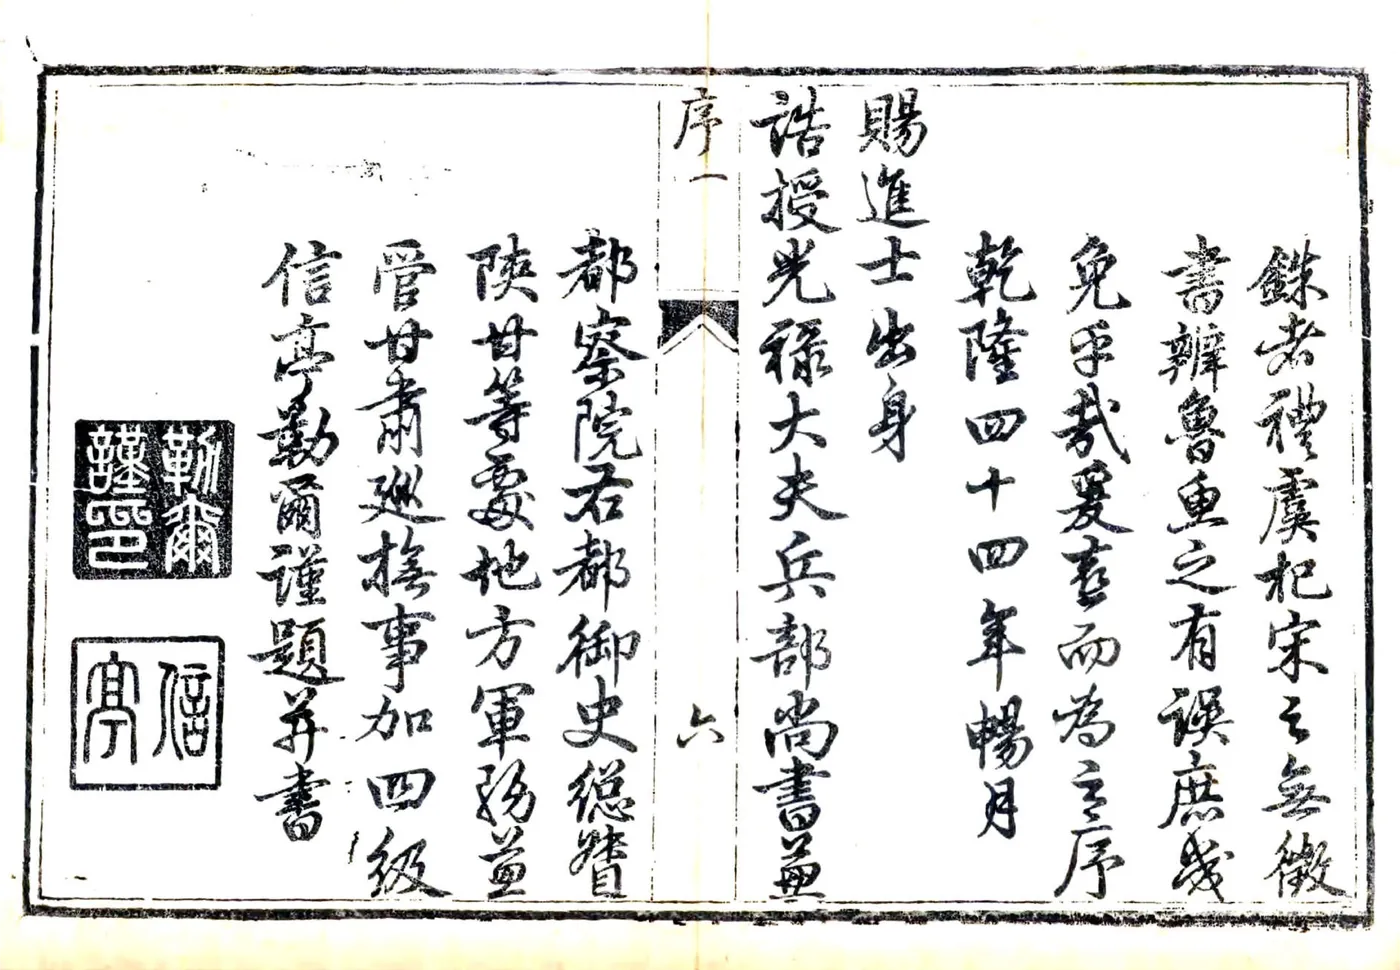 銖考禮虞杞宋之無徵
書辨魯魚之有誤庶幾
免乎哉爰喜而為之序
乾隆四十四年暢月
賜進士出身
誥授光祿大夫兵部尚書兼
序一
六
都察院右都御史總督
陝甘等處地方軍務兼
管甘肅巡撫事加四級
信亭勒爾謹題并書
勒爾謹印
信亭